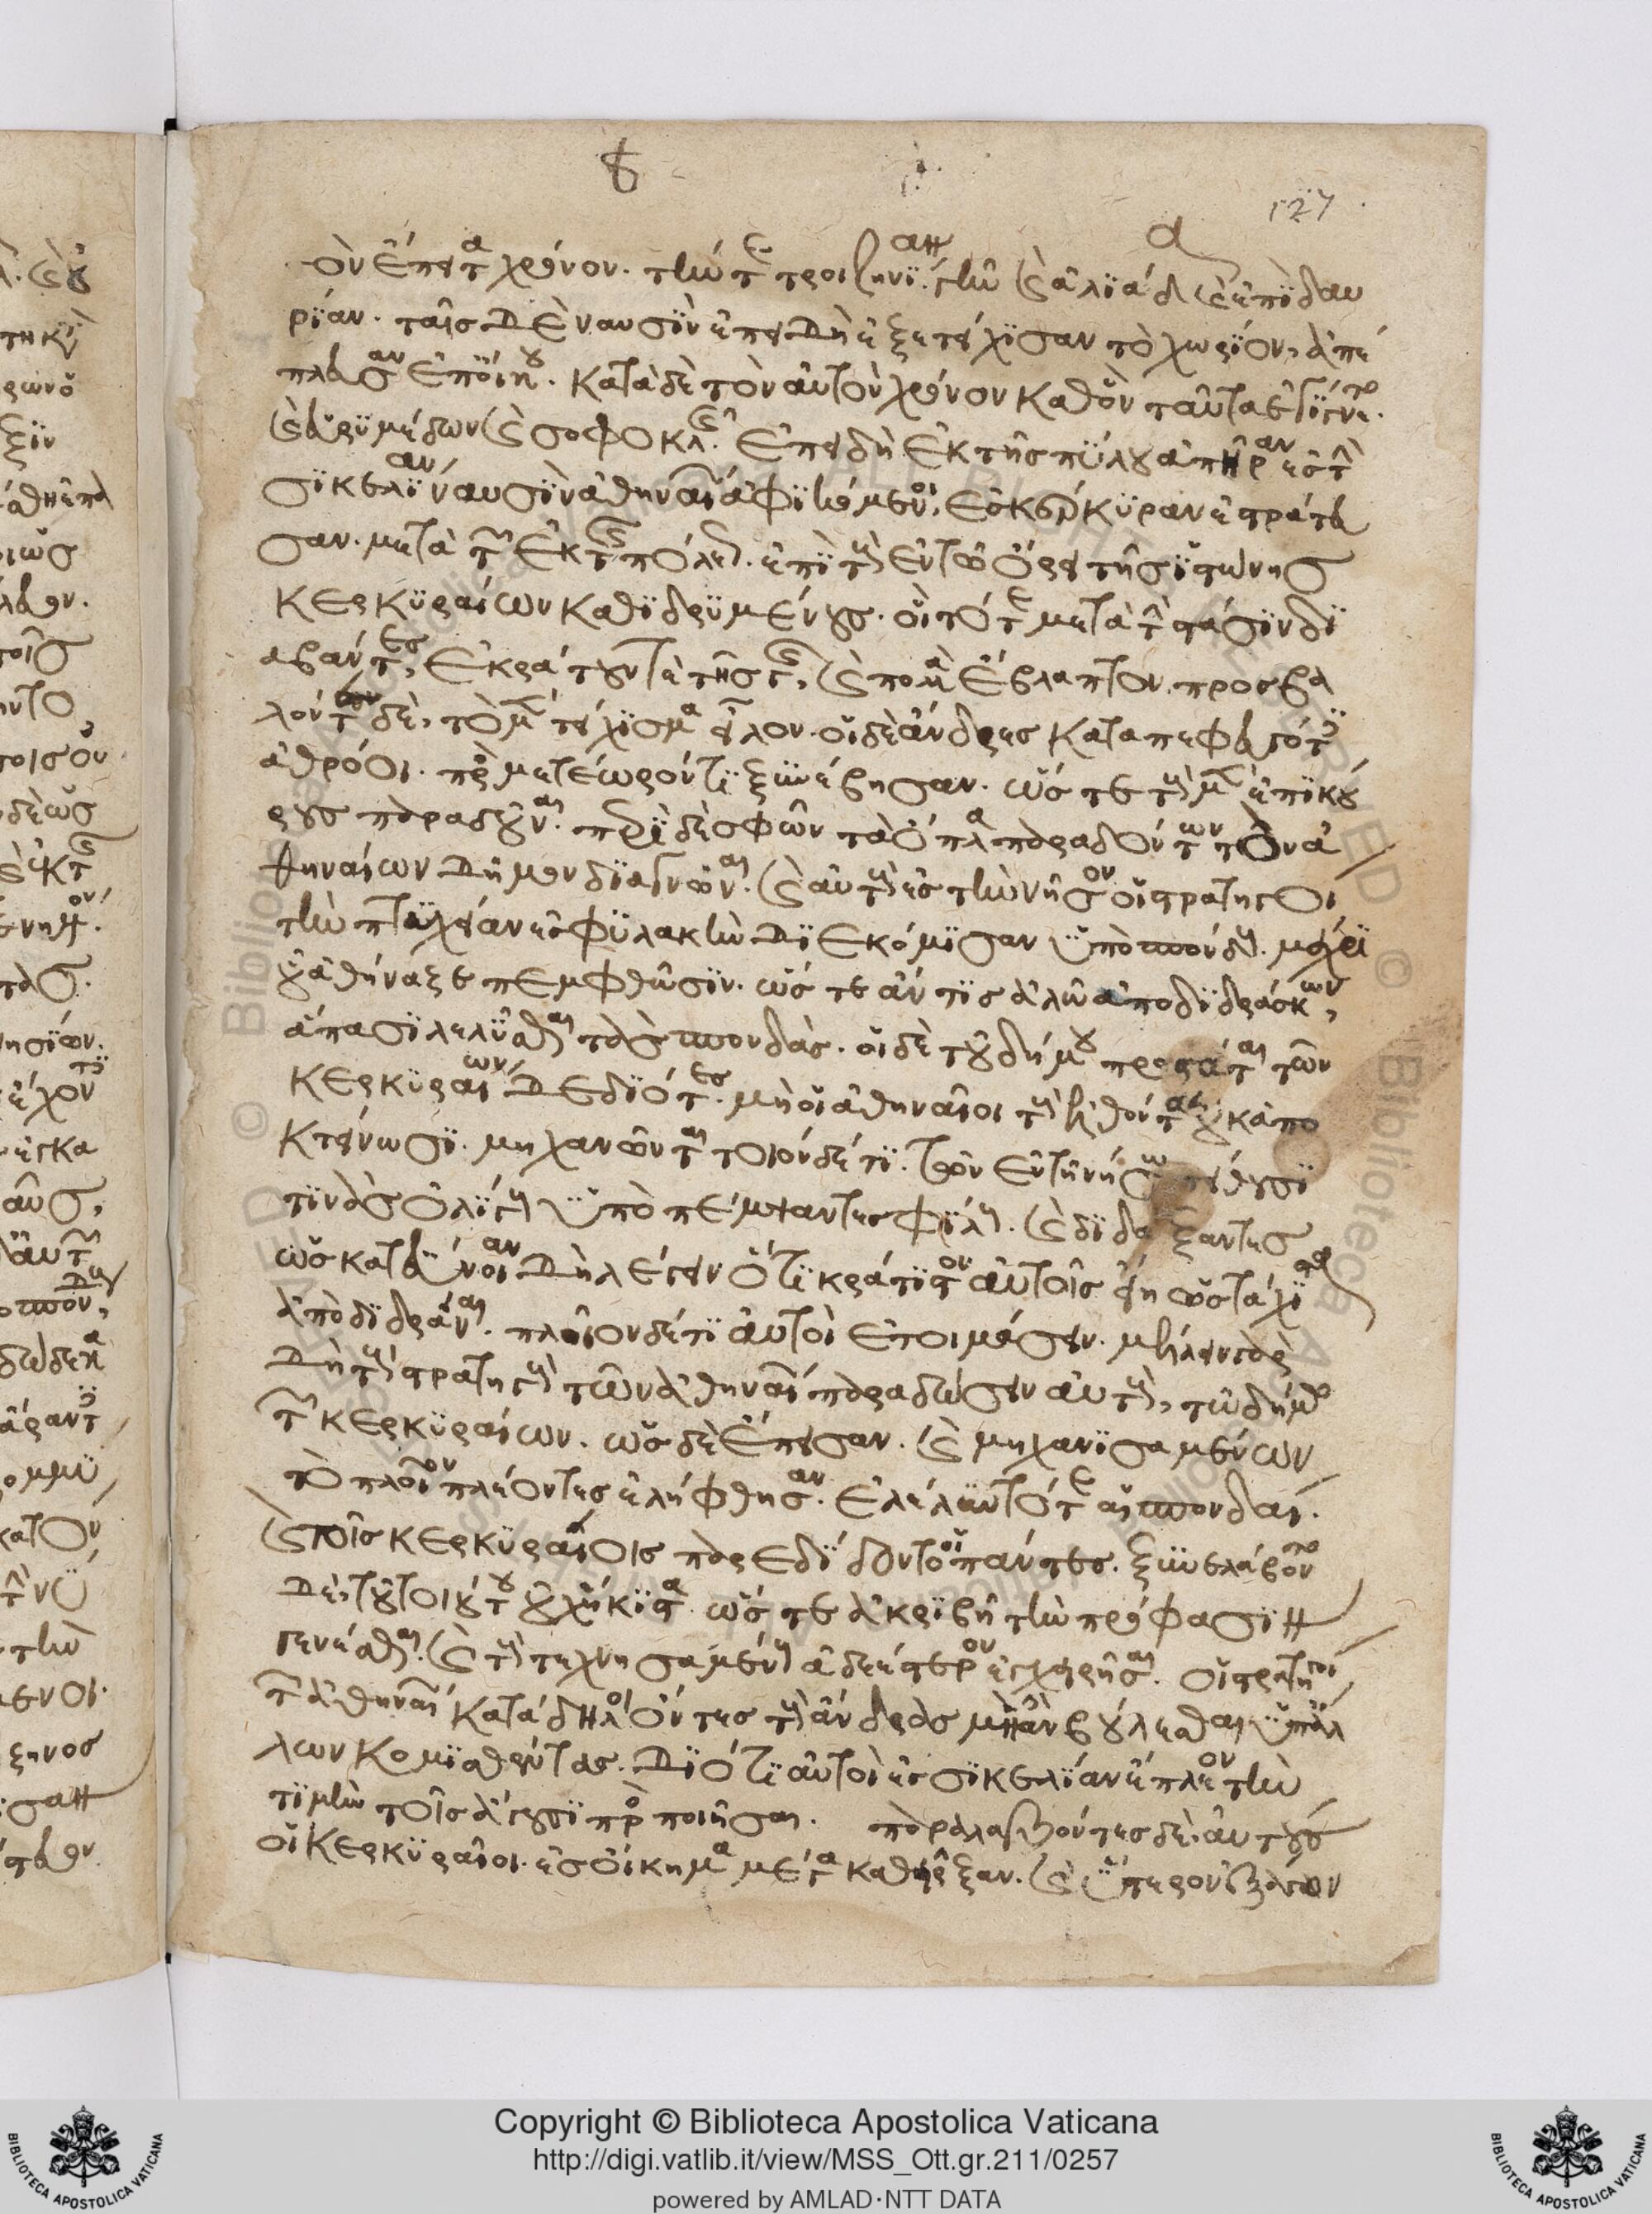 6
127
ὸν ἔπειτα χρόνον. τήν τε τροιζηνίαν γῆν καὶ ἁλϊάδα καὶ ἐπϊδαυ
ρίαν. ταῖς δὲ ναυσὶν ἐπειδὴ ἐξετείχισαν τὸ χωρίον, ἀπέ
πλευσαν ἐπ' οἴκου. κατὰ δὲ τὸν αὐτὸν χρόνον καθ' ὃν ταῦτα ἐγίγνετο.
καὶ εὐρυμέδων καὶ σοφοκλῆς. ἐπειδὴ ἐκ τῆς πύλου ἀπῆραν ἐς τὴν
σικελίαν ναυσὶν ἀθηναίων ἀφικόμενοι, ἐς κέρκυραν ἐστράτευ
σαν. μετὰ τῶν ἐκ τῆς πόλεως. ἐπὶ τοὺς ἐν τῷ ὄρει τῆς ἰστώνης
κερκυραίων καθιδρυμένους. οἳ τότε μετὰ τὴν στάσιν δι
αβάντες, ἐκράτουν τὲ τῆς γῆς, καὶ πολλὰ ἔβλαπτον. προσβα
λόντες δὲ, τὸ μὲν τείχισμα εἷλον. οἱ δὲ ἄνδρες καταπεφευγότες
ἀθρόοι. πρὸς μετέωρόν τι ξυνέβησαν. ὥστε τοὺς μὲν ἐπικού
ρους παραδοῦναι. περὶ δὲ σφῶν τὰ ὅπλα παραδόντων τὸν ἀ
θηναίων δῆμον διαγνῶναι. καὶ αὐτοὺς ἐς τὴν νῆσον οἱ στρατηγοὶ
τὴν πτυχίαν ἐς φυλακὴν διεκόμισαν ὑπὸ σπόνδους. μέχρι
οὗ ἀθήναξε πεμφθῶσιν. ὥστε ἄν τις ἁλῷ ἀποδιδράσκων,
ἅπασι λελύσθαι τὰς σπονδάς. οἱ δὲ τοῦ δήμου προστάται τῶν
κερκυραίων δεδιότες. μὴ οἱ ἀθηναῖοι τοὺς ἐλθόντας οὐκ ἀπο
κτείνωσι. μηχανῶνται τοιόνδέ τι. τῶν ἐν τῇ νήσω πείθουσί
τινὰς ὀλίγους ὑποπέμψαντες φίλους. καὶ διδάξαντες
ὡς κατ' εὔνοιαν δὴ λέγειν ὅτι κράτιστον αὐτοῖς εἴη ὡς τάχιστα
ἀποδιδράναι. πλοῖον δέ τι αὐτοὶ ἑτοιμάσειν. μέλλειν γὰρ
δὴ τοὺς στρατηγοὺς τῶν ἀθηναίων παραδώσειν αὐτοὺς, τῷ δήμῳ
τῶν κερκυραίων. ὡς δὲ ἔπεισαν. καὶ μηχανισαμένων
τὸ πλοῖον πλέοντες ἐλήφθησαν. ἐλέλυντό τε αἱ σπονδαί.
καὶ τοῖς κερκυραίοις παρεδίδοντο οἱ πάντες. ξυνελάβοντο
δὲ, τοῦ τοιούτου οὐχ ἥκιστα. ὥστε ἀκριβῆ τὴν πρόφασιν
γενέσθαι. καὶ τοὺς τεχνησαμένους ἀδεέστερον ἐγχειρῆσαι. οἱ στρατηγοὶ
τῶν ἀθηναίων κατάδηλοι ὄντες τοὺς ἄνδρας μὴ ἂν βούλεσθαι ὑπ' ἄλ
λων κομισθέντας. διότι αὐτοὶ ἐς σικελίαν ἔπλεον τὴν
τιμὴν τοῖς ἄγουσι προσποιῆσαι. παραλαβόντες δὲ αὐτοὺς
οἱ κερκυραῖοι. ἐς οἴκημα μέγα καθεῖρξαν. καὶ ὕστερον ἐξάγων
Copyright © Biblioteca Apostolica Vaticana
http://digi.vatlib.it/view/MSS_Ott.gr.211/0257
powered by AMLAD·NTT DATA